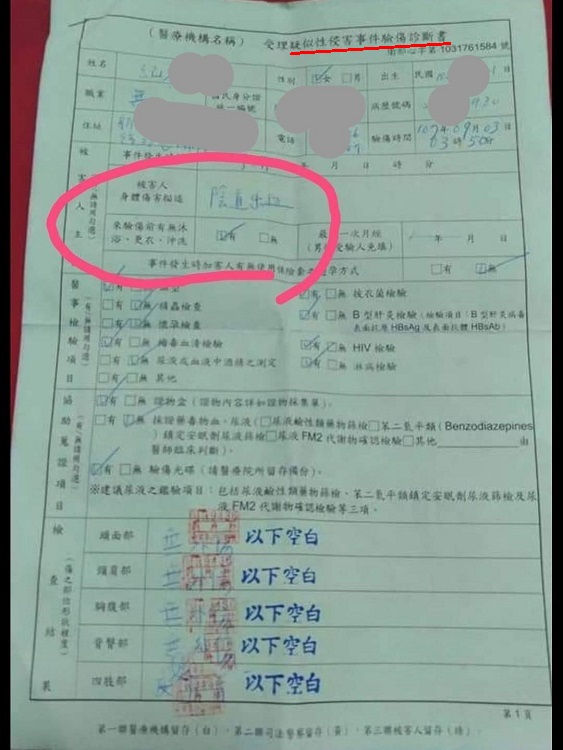 (醫療機構名稱) 受理疑似性侵害事件驗傷診斷書
衛部心字第1031761584號
姓名 性別 女 男 出生 民國
職業 無 國民身分證統一編號 病歷號碼
住址 電話 驗傷時間 107年09月03日
03時50分
事件發生時 年 月 日 時 分
被害人主 (有、無請用勾選)
被害人身體傷害描述 陰道
來驗傷前有無沐浴、更衣、沖洗 有 無
事件發生時加害人有無使用保險套 方式 有 無
醫事檢驗項目 (有、無請用勾選)
有 無 精蟲檢查 有 無 B型肝炎檢驗(檢驗項目:B型肝炎病毒表面抗原HBsAg及表面抗體HBsAb)
有 無 懷孕檢查
有 無 梅毒血清檢驗 有 無 HIV檢驗
有 無 尿液或血液中酒精之測定 有 無 淋病檢驗
有 無 其他
協助蒐證項目 (有、無請用勾選)
有 無 證物盒(證物內容詳如證物採集單)。
有 無 採證藥毒物血、尿液(尿液鹼性類藥物篩檢 苯二氮平類(Benzodiazepines)鎮定安眠劑尿液篩檢 尿液FM2代謝物確認檢驗 其他 由醫師臨床判斷)。
有 無 驗傷光碟(請醫療院所留存備份)。
※建議尿液之鑑驗項目:包括尿液鹼性類藥物篩檢、苯二氮平類鎮定安眠劑尿液篩檢及尿液FM2代謝物確認檢驗等三項。
檢查結果 (傷之部位形狀程度)
頭面部 無 以下空白
頸肩部 無 以下空白
胸腹部 無 以下空白
背臀部 無 以下空白
四肢部 以下空白
第1頁
第一聯醫療機構留存(白)。第二聯司法警察留存(黃)。第三聯被害人留存(綠)。